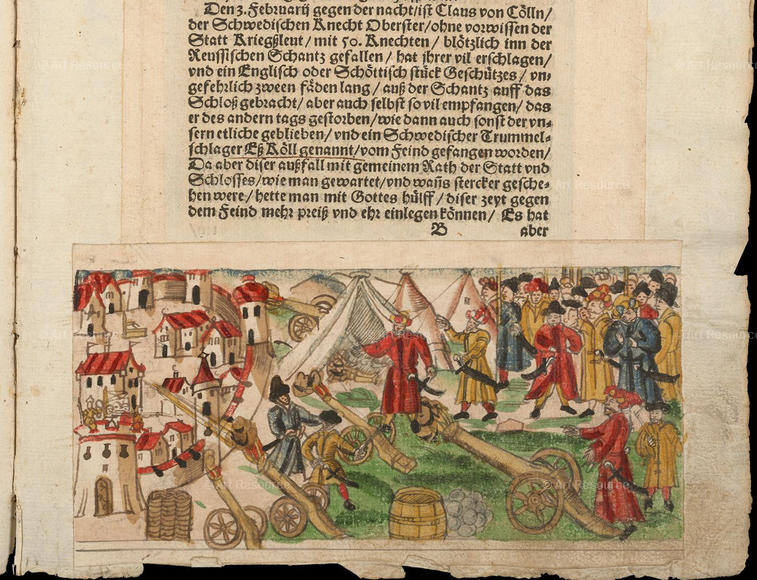 Den 3. Februarij gegen der nacht/ist Claus von Cölln/
der Schwedischen Knecht Oberster/ohne vorwissen der
Statt Kriegßleut/mit 50. Knechten/ blötzlich inn der
Reussischen Schantz gefallen/ hat jhrer vil erschlagen/
vnd ein Englisch oder Schöttisch stück Geschützes/ vn-
gefehrlich zween fäden lang/ auß der Schantz auff das
Schloß gebracht/aber auch selbst so vil empfangen/das
er des andern tags gestorben/wie dann auch sonst der vn-
sern etliche geblieben/vnd ein Schwedischer Trummel-
schlager Eß Köll genannt/vom Feind gefangen worden/
Da aber diser außfall mit gemeinem Rath der Statt vnd
Schlosses/wie man gewartet/vnd wañs stercker gesche-
hen were/hette man mit Gottes hülff/diser zeyt gegen
dem Feind mehr preiß vnd ehr einlegen können/ Es hat
B aber
© Art Resource
© Art Resource
© Art Resource
© Art Resource
© Art Resource
© Art Resource